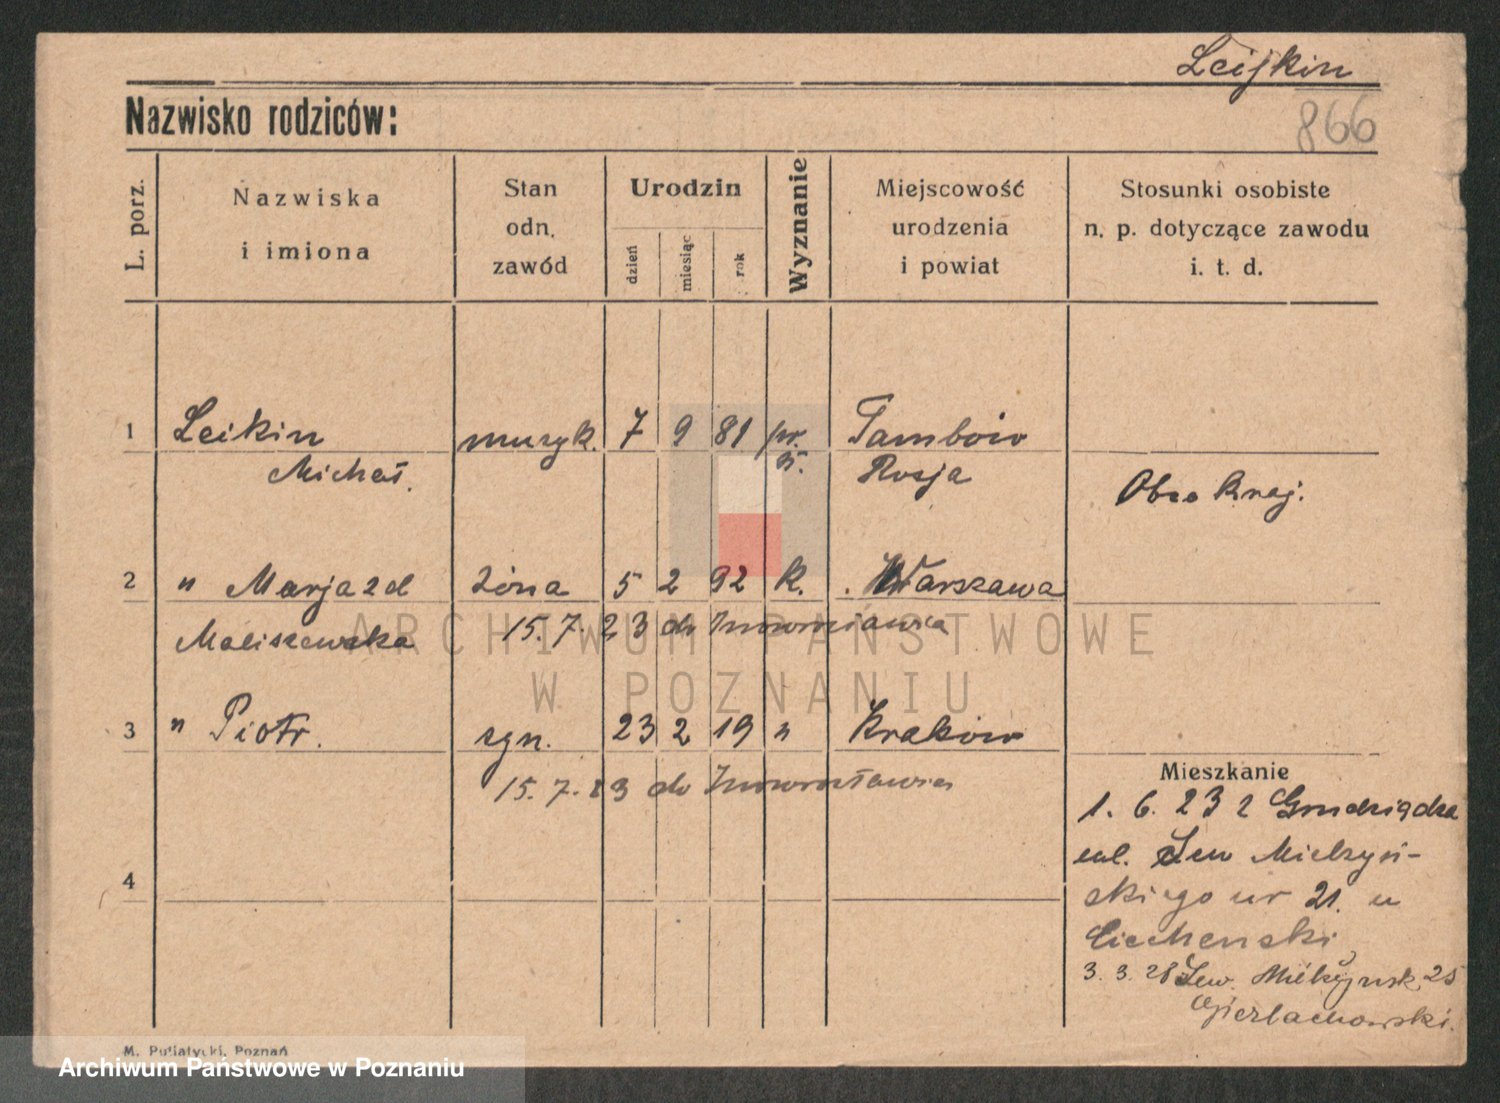 Leijkin
866
Nazwisko rodziców:
L. porz.
Nazwiska
i imiona
Stan
odn.
zawód
Urodzin
dzień
miesiąc
rok
Wyznanie
Miejscowość
urodzenia
i powiat
Stosunki osobiste
n. p. dotyczące zawodu
i. t. d.
1 Leikin muzyk. 7 9 81 pr. Tambów
Michał. Rosja
Obco kraj.
2 " Marja zd żona 5 2 92 k. Warszawa
Maliszewska 15. 7. 23 do Inowrocławia
3 " Piotr. syn. 23 2 19 " Kraków
15. 7. 23 do Inowrocławia
4
Mieszkanie
1. 6. 23 z Grudziądza
ul. Sew Mielżyń-
skiego nr 21. u
Ciechenski
3. 3. 28 Sew. Mielżyńsk. 25
Gierlachowski.
ARCHIWUM PAŃSTWOWE
W POZNANIU
M. Putiatycki, Poznań
Archiwum Państwowe w Poznaniu